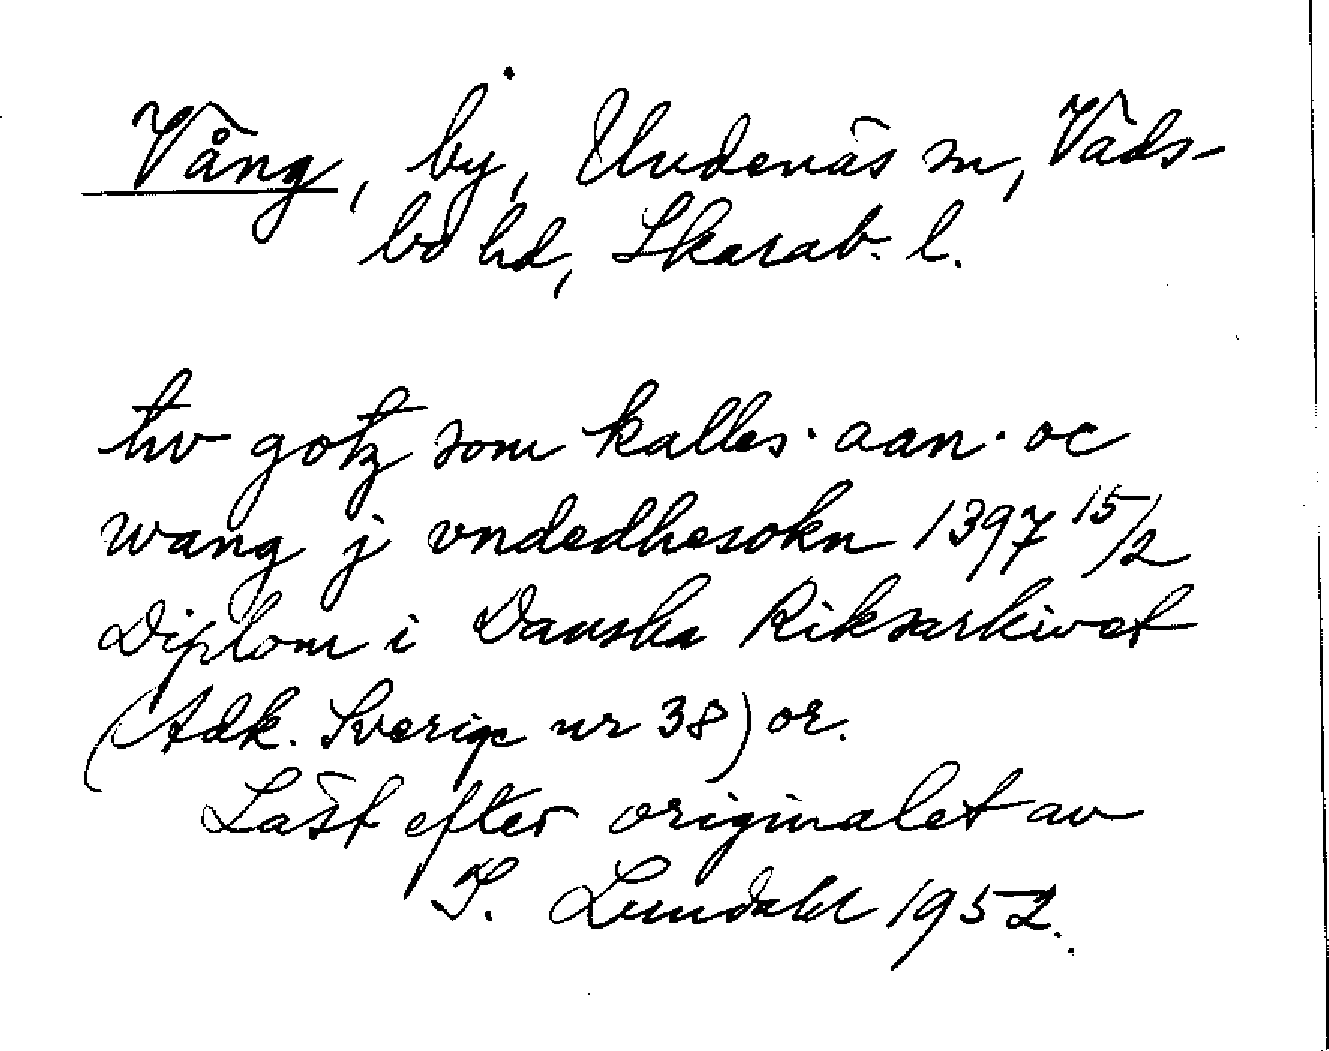 Vång, by, Undenäs sn, Vads-
bo hd, Skarab. l.
tw gotz som kalles · aan · oc
wang j vndedhesokn 1397 15/2
Diplom i Danska Riksarkivet
(Adk. Sverige nr 38) or.
Läst efter originalet av
I. Lundahl 1952.